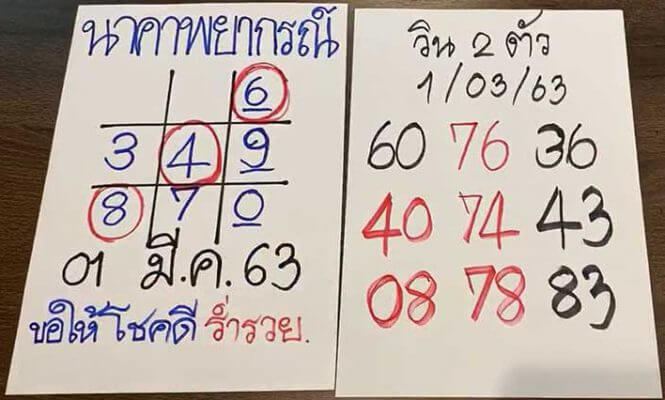 นาคาพยากรณ์
6
3 4 9
8 7 0
01 มี.ค.63
ขอให้โชคดี ร่ำรวย.
วิน 2 ตัว
1/03/63
60 76 36
40 74 43
08 78 83